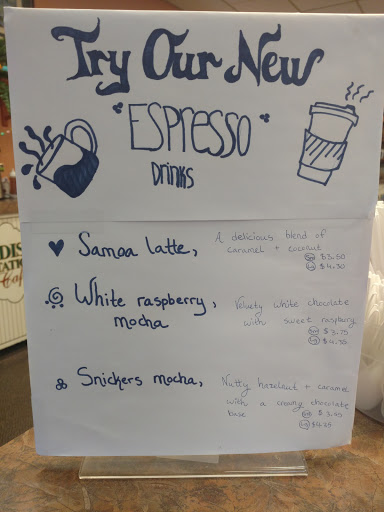 Try Our New
"ESPRESSO"
DRINKS
Samoa latte,
A delicious blend of
caramel + coconut
sm $3.50
lg $4.30
White raspberry,
mocha
Velvety white chocolate
with sweet raspberry
sm $3.75
lg $4.35
Snickers mocha,
Nutty hazelnut + caramel
with a creamy chocolate
base
$3.45
lg
DIS